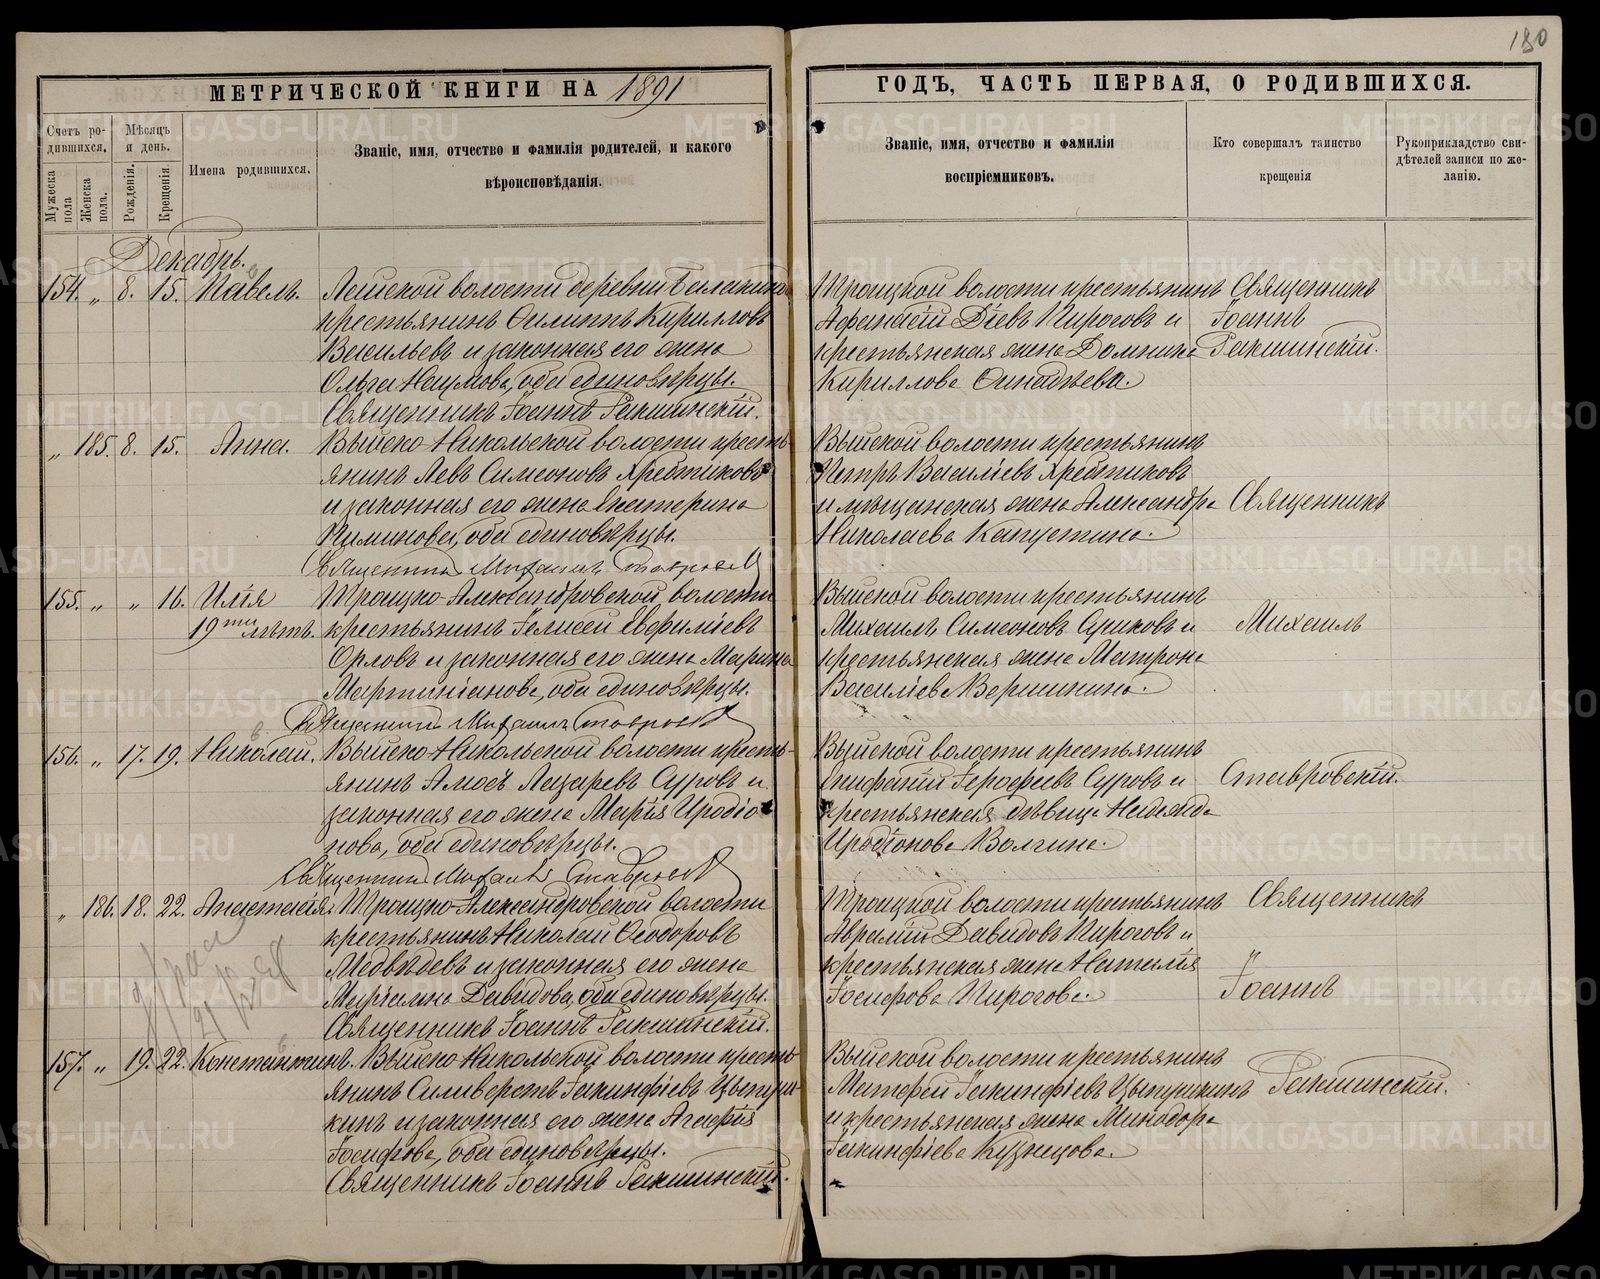 180
МЕТРИЧЕСКОЙ КНИГИ НА 1891
ГОДЪ, ЧАСТЬ ПЕРВАЯ, О РОДИВШИХСЯ.
Счетъ ро-
дившихся.
Мѣсяцъ
и день.
Мужеска
пола
Женска
пола.
Рожденія.
Крещенія.
Имена родившихся.
Званіе, имя, отчество и фамилія родителей, и какого
вѣроисповѣданія.
Званіе, имя, отчество и фамилія
воспріемниковъ.
Кто совершалъ таинство
крещенія
Рукоприкладство сви-
дѣтелей записи по же-
ланію.
Декабрь.
154. „ 8. 15. Павелъ.
крестьянинъ Филиппъ Кирилловъ
Васильевъ и законная его жена
Ольга Наумова, оба единовѣрцы.
Священникъ Іоаннъ
Троицкой волости крестьянинъ
Афанасій Діевъ Пироговъ и
крестьянская жена Домника
Кириллова
Священникъ
Іоаннъ
„ 185. 8. 15. Анна.
Выйско-Никольской волости кресть-
янинъ Левъ Симеоновъ Хребтиковъ
и законная его жена Екатерина
Пиминова, оба единовѣрцы.
Священникъ Михаилъ Ставровскій
Выйской волости крестьянинъ
Петръ Василіевъ Хребтиковъ
и мѣщанская жена Александра
Николаева Капустина.
Священникъ
155. „ „ 16. Илія
19ти лѣтъ.
Троицко-Александровской волости
крестьянинъ Іелисей Евфиміевъ
Орловъ и законная его жена Марина
Мартиніанова, оба единовѣрцы.
Священникъ Михаилъ Ставровскій
Выйской волости крестьянинъ
Михаилъ Симеоновъ и
крестьянская жена Матрона
Василіева Вершинина.
Михаилъ
156. „ 17. 19. Николай.
Выйско-Никольской волости кресть-
янинъ Амосъ Лазаревъ Суровъ и
законная его жена Марія Иродіо-
нова, оба единовѣрцы.
Священникъ Михаилъ Ставровскій
Выйской волости крестьянинъ
Епифаній Іерофеевъ Суровъ и
крестьянская дѣвица Надежда
Иродіонова Волгина.
Ставровскій.
„ 186. 18. 22. Анастасія.
Троицко-Александровской волости
крестьянинъ Николай Ѳеодоровъ
Медвѣдевъ и законная его жена
Маріамна Давидова, оба единовѣрцы.
Священникъ Іоаннъ
Троицкой волости крестьянинъ
Авраамій Давидовъ Пироговъ и
крестьянская жена Наталія
Іосифова Пирогова.
Священникъ
Іоаннъ
157. „ 19. 22. Константинъ.
Выйско-Никольской волости кресть-
янинъ Силиверстъ Іакинфіевъ Цыпуш-
кинъ и законная его жена Агафія
Іосифова, оба единовѣрцы.
Священникъ Іоаннъ
Выйской волости крестьянинъ
Матфей Іакинфіевъ Цыпушкинъ
и крестьянская жена Минодора
Іакинфіева Кузнецова.
METRIKI.GASO-URAL.RU